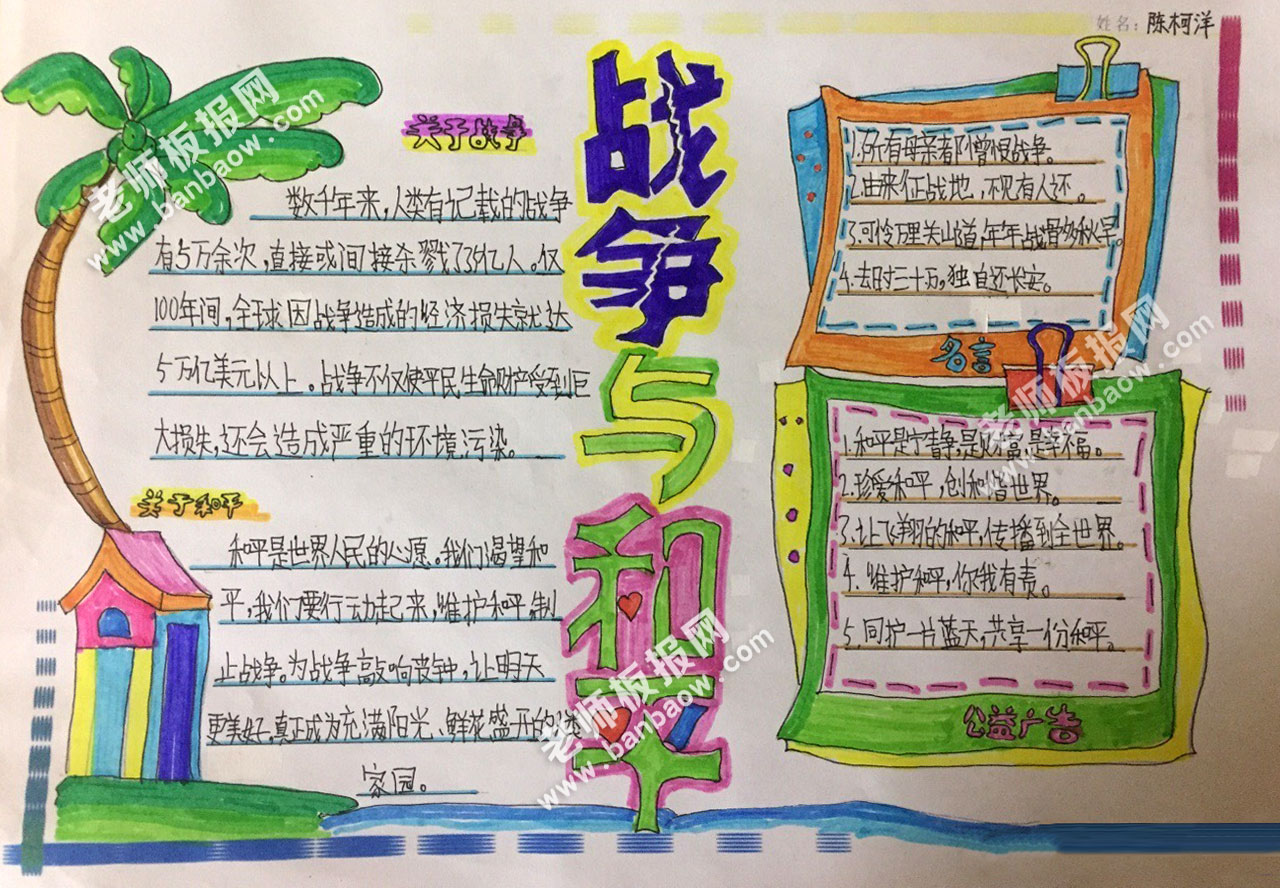 姓名：陈柯洋
战争与和平
关于战争
数千年来，人类有记载的战争
有5万余次，直接或间接杀戮了39亿人。仅
100年间，全球因战争造成的经济损失就达
5万亿美元以上。战争不仅使平民生命财产受到巨
大损失，还会造成严重的环境污染。
关于和平
和平是世界人民的心愿。我们渴望和
平，我们要行动起来，维护和平制
止战争。为战争敲响警钟，让明天
更美好，真正成为充满阳光、鲜花盛开的
家园。
1.所有母亲都憎恨战争。
2.由来征战地，不见有人还。
3.可怜万里关山道，年年战骨多秋草。
4.去时三十万，独自还长安。
名言
1.和平是宁静，是财富，是幸福。
2.珍爱和平，创和谐世界。
3.让飞翔的和平，传播到全世界。
4.维护和平，你我有责。
5.同护一片蓝天，共享一份和平。
公益广告
老师板报网
www.banbaow.com
老师板报网
www.banbaow.com
老师板报网
www.banbaow.com